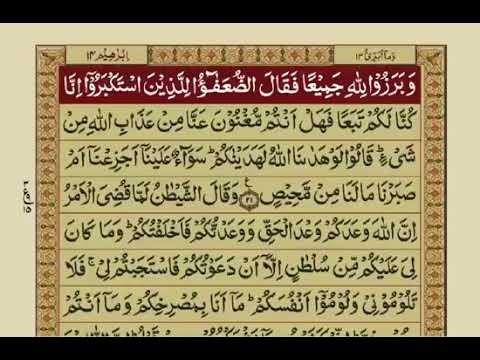 اِبْرٰهِيْم ١٤ وَمَآ اُبَرِّئُ ١٣
وَبَرَزُوْا لِلّٰهِ جَمِيْعًا فَقَالَ الضُّعَفٰٓؤُا لِلَّذِيْنَ اسْتَكْبَرُوْٓا اِنَّا
كُنَّا لَكُمْ تَبَعًا فَهَلْ اَنْتُمْ مُّغْنُوْنَ عَنَّا مِنْ عَذَابِ اللّٰهِ مِنْ
شَیْءٍ ؕ قَالُوْا لَوْ هَدٰىنَا اللّٰهُ لَهَدَيْنٰكُمْ ؕ سَوَآءٌ عَلَيْنَآ اَجَزِعْنَآ اَمْ
صَبَرْنَا مَا لَنَا مِنْ مَّحِيْصٍ ۟ ﴿٢١﴾ وَقَالَ الشَّيْطٰنُ لَمَّا قُضِیَ الْاَمْرُ
اِنَّ اللّٰهَ وَعَدَكُمْ وَعْدَ الْحَقِّ وَوَعَدْتُّكُمْ فَاَخْلَفْتُكُمْ ؕ وَمَا كَانَ
لِیَ عَلَيْكُمْ مِّنْ سُلْطٰنٍ اِلَّاۤ اَنْ دَعَوْتُكُمْ فَاسْتَجَبْتُمْ لِیْ ۚ فَلَا
تَلُوْمُوْنِیْ وَلُوْمُوْٓا اَنْفُسَكُمْ ؕ مَاۤ اَنَا بِمُصْرِخِكُمْ وَمَاۤ اَنْتُمْ